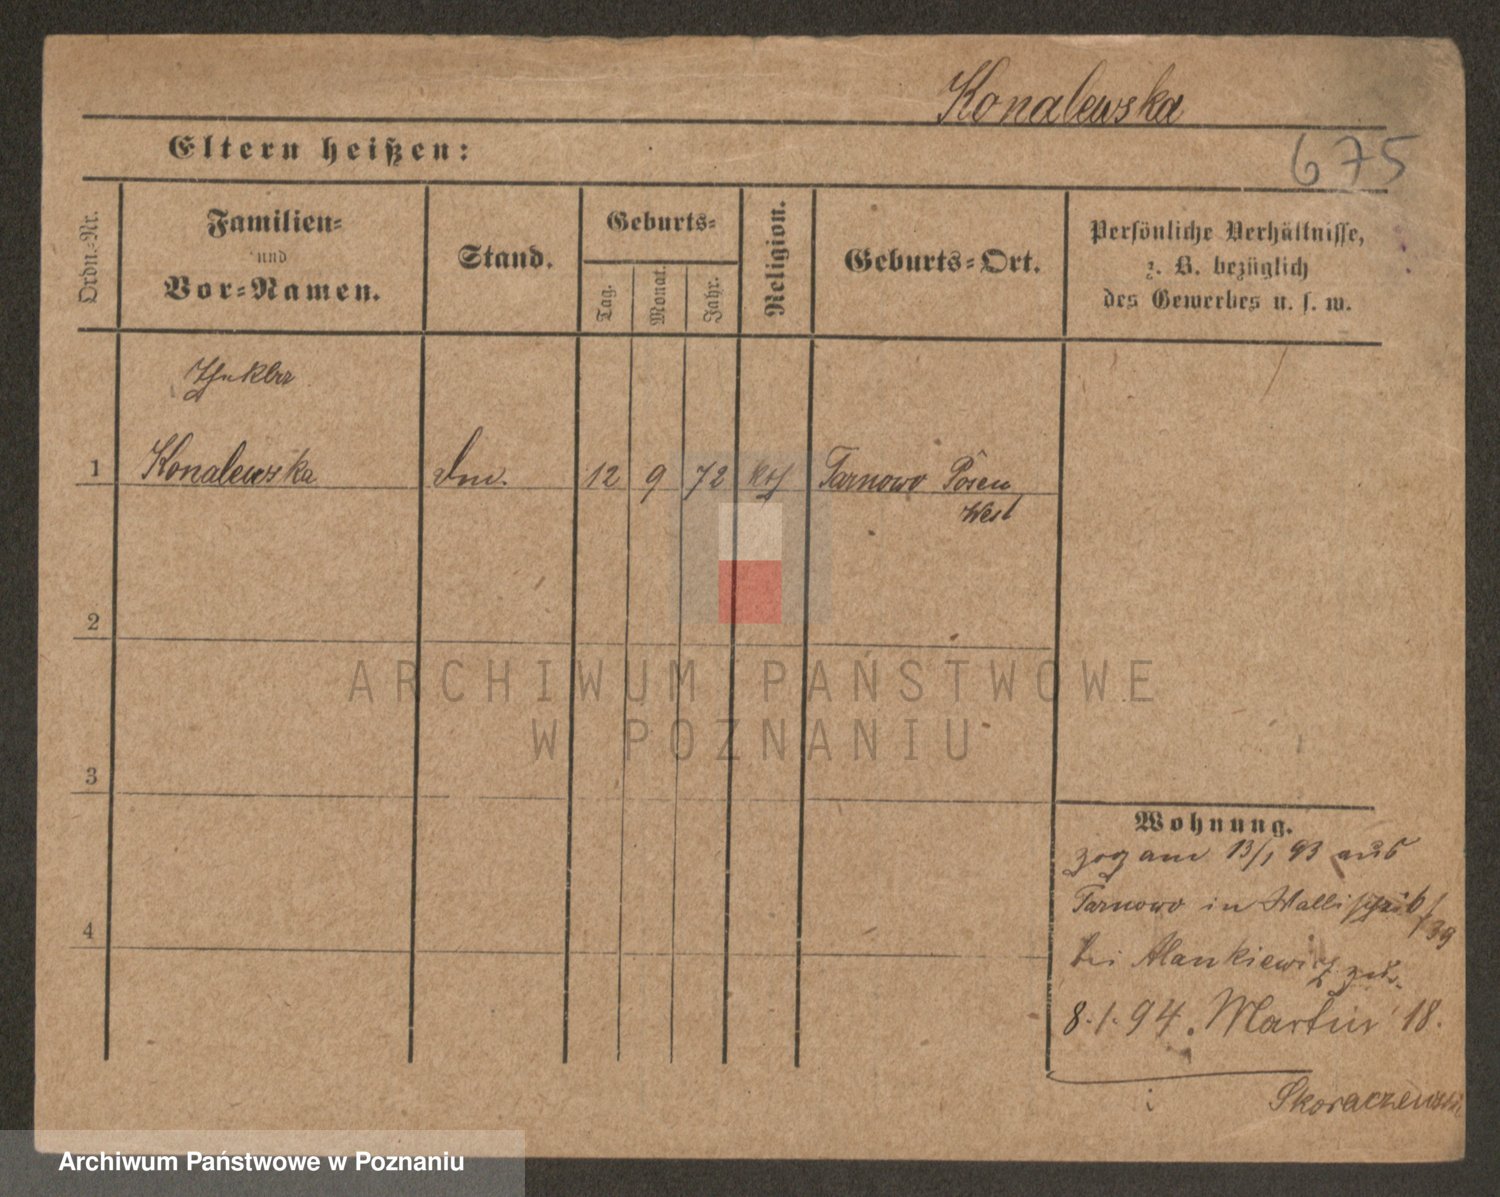 Konalewska
675
Eltern heißen:
Ordn.-Nr.
Familien-
und
Vor-Namen.
Stand.
Geburts-
Tag.
Monat.
Jahr.
Religion.
Geburts-Ort.
Persönliche Verhältnisse,
z. B. bezüglich
des Gewerbes u. s. w.
1 Konalewska 12 9 72 kth Tarnowo Posen
West
2
3
4
Wohnung.
zog am 13/1 93 aus
Tarnowo in Wallischei 6/39
bei Alankiewicz
8.1.94. Martin 18.
Skoraczewski
ARCHIWUM PAŃSTWOWE
W POZNANIU
Archiwum Państwowe w Poznaniu